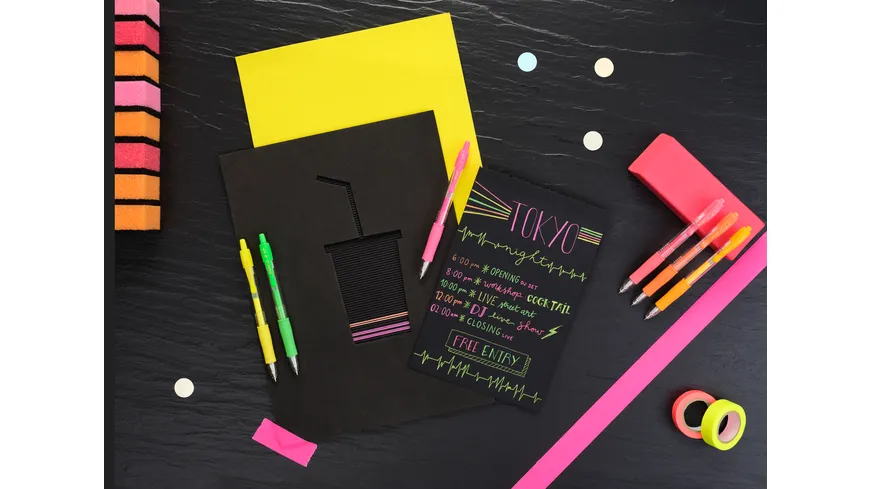 TOKYO
night
6:00 pm * OPENING DJ SET
8:00 pm * workshop COCKTAIL
10:00 pm * LIVE street art
12:00 pm * DJ live show
02:00 am * CLOSING LIVE
FREE ENTRY